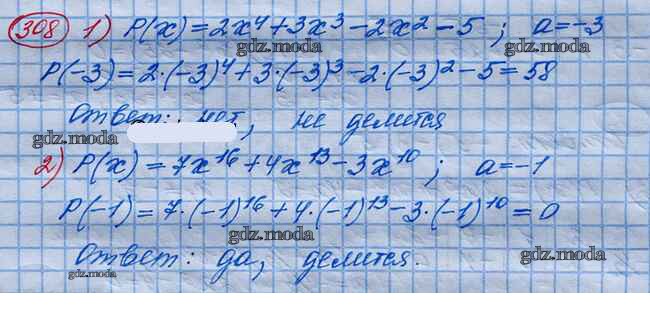 308 1) P(x) = 2x⁴ + 3x³ − 2x² − 5 ; a = −3
gdz.moda
gdz.moda
P(−3) = 2·(−3)⁴ + 3·(−3)³ − 2·(−3)² − 5 = 58
Ответ: нет, не делится
gdz.moda
gdz.moda
2) P(x) = 7x¹⁶ + 4x¹³ − 3x¹⁰ ; a = −1
P(−1) = 7·(−1)¹⁶ + 4·(−1)¹³ − 3·(−1)¹⁰ = 0
gdz.moda
Ответ: да, делится.
gdz.moda
gdz.moda